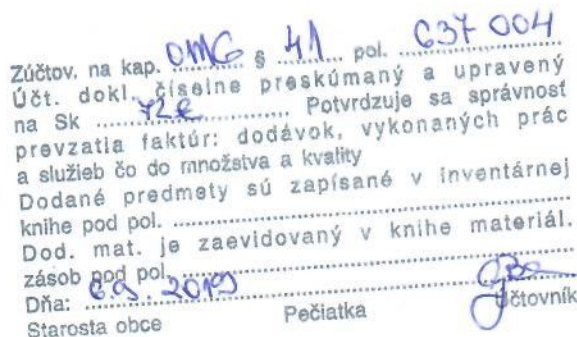 Zúčtov. na kap. OMG § 41 pol. 637 004
Účt. dokl. číselne preskúmaný a upravený
na Sk 72€ Potvrdzuje sa správnosť
prevzatia faktúr: dodávok, vykonaných prác
a služieb čo do množstva a kvality
Dodané predmety sú zapísané v inventárnej
knihe pod pol.
Dod. mat. je zaevidovaný v knihe materiál.
zásob pod pol.
Dňa: 6.9.2019
Starosta obce Pečiatka Účtovník